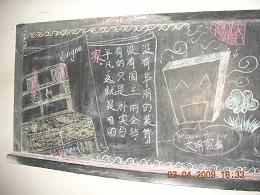 没有华丽的装饰
没有国王的金
有的只是朴实与
平凡这就是咱的
家
Welcome to our
文明宿舍
03 04 2009 18:33